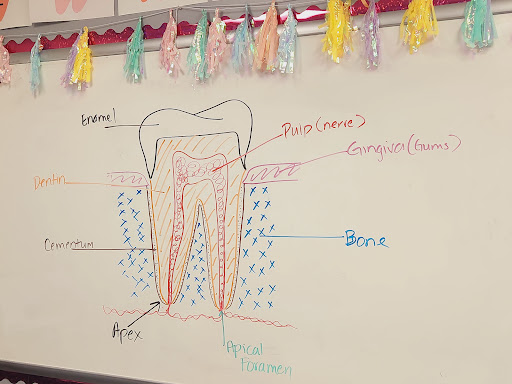 Enamel
Pulp (nerve)
Gingiva (Gums)
Dentin
Cementum
Bone
Apex
Apical
Foramen